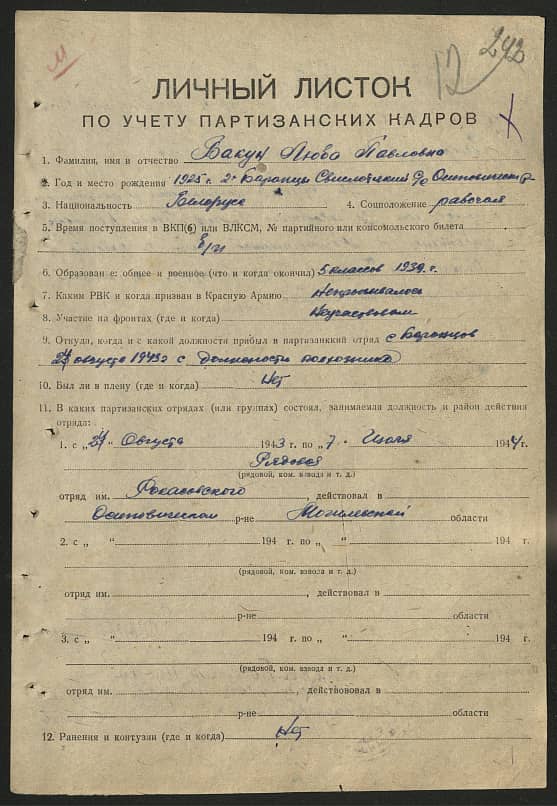 М
12 292
ЛИЧНЫЙ ЛИСТОК
ПО УЧЕТУ ПАРТИЗАНСКИХ КАДРОВ
1. Фамилия, имя и отчество Бакун Люба Павловна
2. Год и место рождения 1925 г. д. Баранцы Свислочский с/с Осиповичск. р
3. Национальность Беларуса 4. Соцположение рабочая
5. Время поступления в ВКП(б) или ВЛКСМ, № партийного или комсомольского билета
б/п
6. Образован е: общее и военное (что и когда окончил) 5 классов 1939 г.
7. Каким РВК и когда призван в Красную Армию Непризывалось
8. Участие на фронтах (где и когда)
9. Откуда, когда и с какой должности прибыл в партизанкий отряд с Баранцов
24 августа 1943 г с должности колхозника
10. Был ли в плену (где и когда) Нет
11. В каких партизанских отрядах (или группах) состоял, занимаемая должность и район действия
отряда:
1. с „24“ Августа 1943 г. по „7“ Июля 1944 г.
Рядовой
(рядовой, ком. взвода и т. д.)
отряд им. Рокасовского, действовал в
Осиповичском р-не Могилевской области
2. с „ “ 194 г. по „ “ 194 г.
(рядовой, ком. взвода и т. д.)
отряд им. , действовал в
р-не области
3. с „ “ 194 г. по „ “ 194 г.
(рядовой, ком. взвода и т. д.)
отряд им. , действовал в
р-не области
12. Ранения и контузии (где и когда) Нет